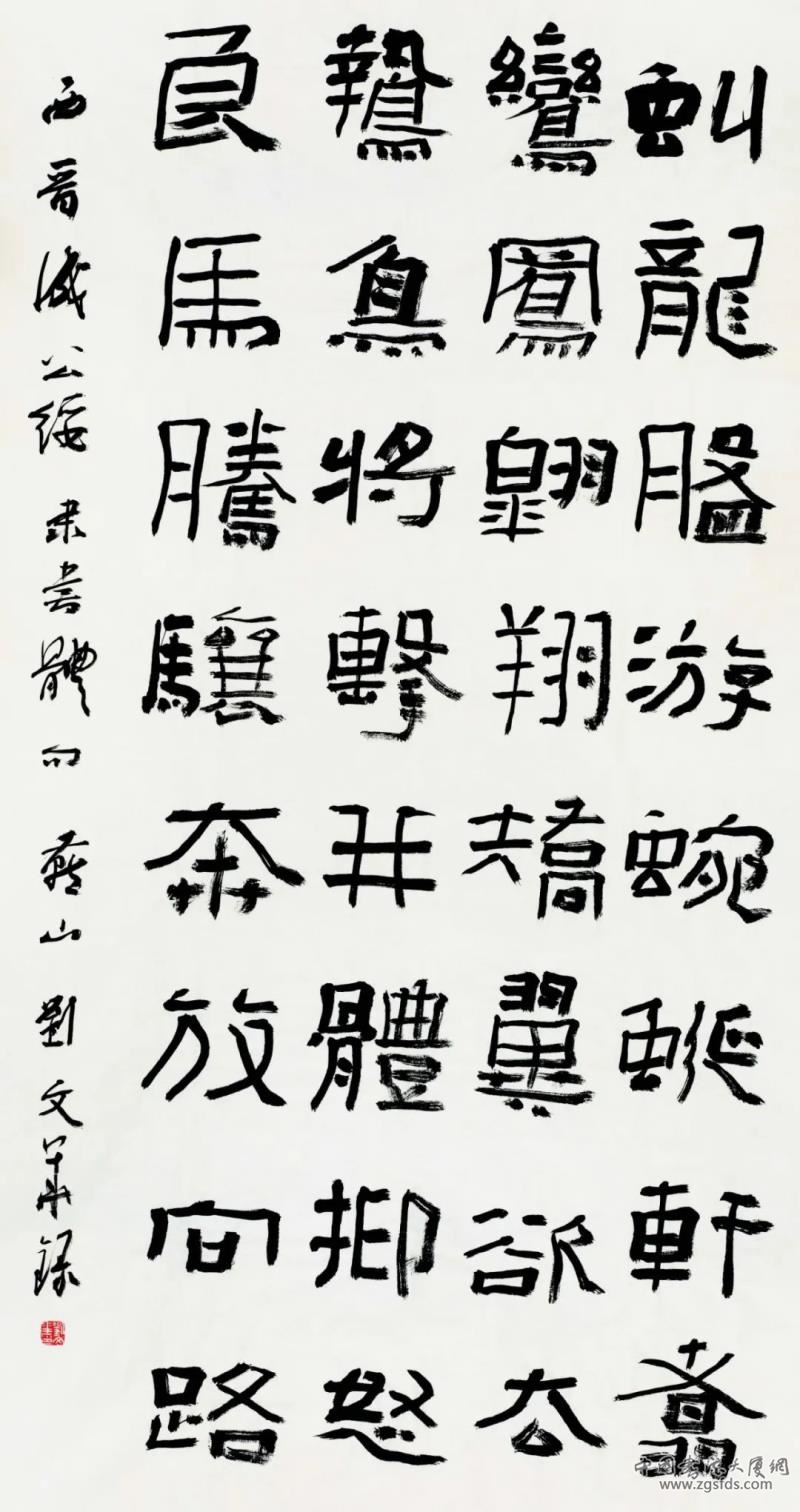 虯龍盤游蜿蜒軒翥
鸞鳳翱翔矯翼欲去
鷙鳥將擊并體抑怒
良馬騰驤奔放向路
西晉成公綏隶書體句 燕山劉文華錄
中国书法大厦網
www.zgsfds.com